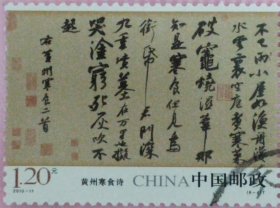 不已雨小屋如漁舟濛濛
水雲裏空庖煮寒菜
破竈燒濕葦那
知是寒食但見烏
銜帋君門深
九重墳墓在万里也擬
哭塗窮死灰吹不
起
右黃州寒食二首
1.20元
黄州寒食诗
CHINA 中国邮政
2010-11